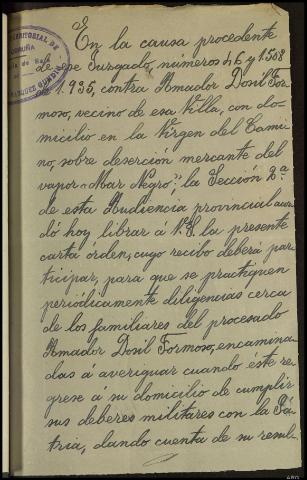 TERRITORIAL DE
CORUÑA
En la causa procedente
de ese Juzgado, números 46 y 1.508
de 1.935, contra Amador Dosil For-
moso, vecino de esa Villa, con do-
micilio en la Virgen del Cami-
no, sobre deserción mercante del
vapor "Mar Negro"; la Sección 2ª
de esta Audiencia provincial acor-
dó hoy librar á V.S. la presente
carta órden, cuyo recibo deberá par-
ticipar, para que se practiquen
periódicamente diligencias cerca
de los familiares del procesado
Amador Dosil Formoso, encamina-
das á averiguar cuando éste re-
grese á su domicilio de cumplir
sus deberes militares con la Pá-
tria, dando cuenta de su resul-